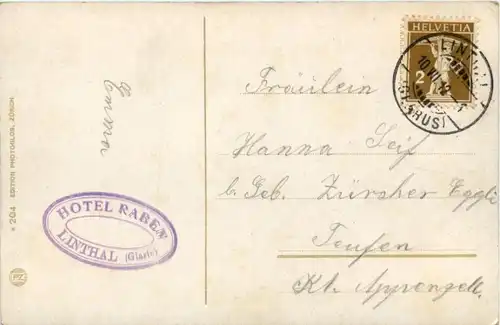 HELVETIA
2
LINTHAL
10.VII.
(GLARUS)
Emma
Fräulein
Hanna Seif
b. Geb. Zürcher Eggli
Teufen
Kt. Appenzell.
HOTEL RABEN
LINTHAL (Glarus)
204 EDITION PHOTOGLOB, ZÜRICH
PZ